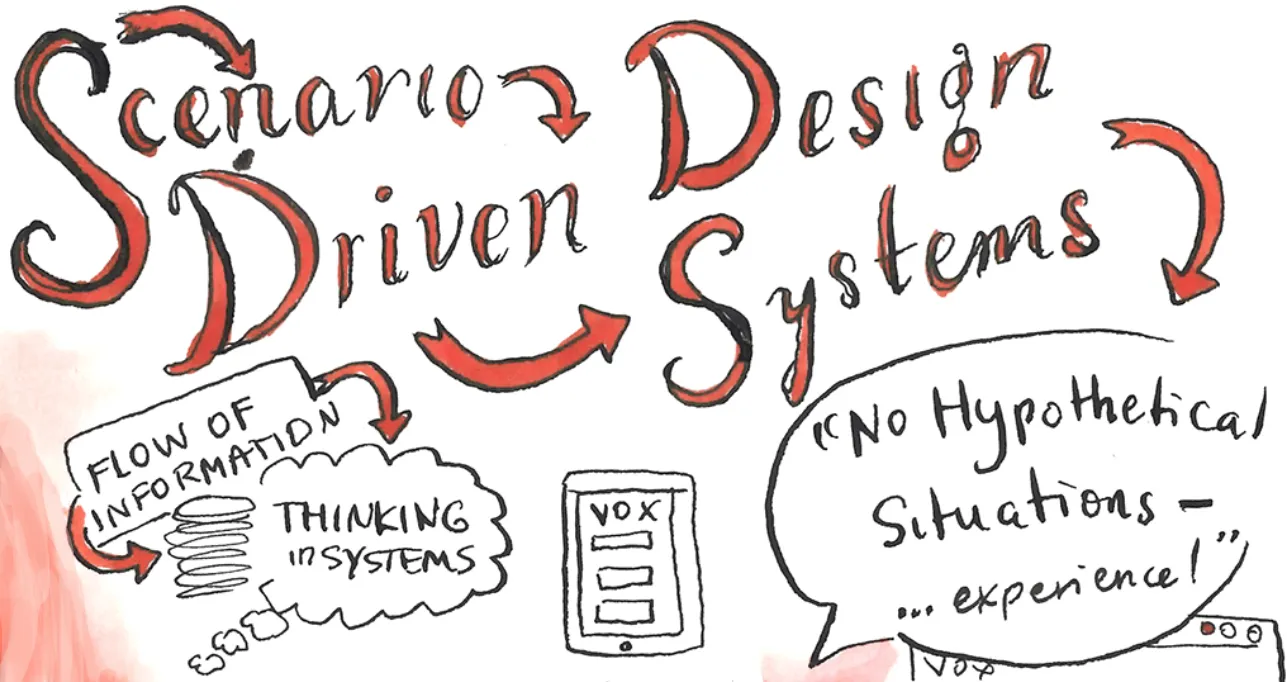 Scenario Design
Driven Systems
FLOW OF
INFORMATION
THINKING
in SYSTEMS
VOX
“No Hypothetical
Situations –
... experience!”
VOX